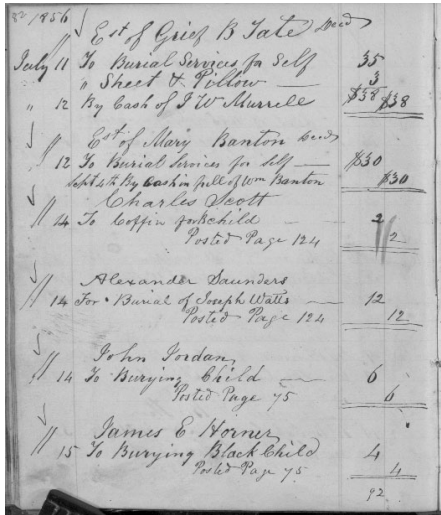 82 1856
" Est of Grief B Tate Decd
July 11 To Burial Services for Self 35
" Sheet & Pillow — 3
" 12 By Cash of J W Murrell $38 $38
" Est of Mary Banton Decd
12 To Burial Services for Self — $30
Sept 4th By Cash in full of Wm Banton $30
" Charles Scott
14 To Coffin for Bchild — 2
Posted Page 124 2
" Alexander Saunders
14 For Burial of Joseph Watts — 12
Posted Page 124 12
" John Jordan
14 To Burying Child — 6
Posted Page 75 6
" James E Horner
15 To Burying Black Child 4
Posted Page 75 4
92